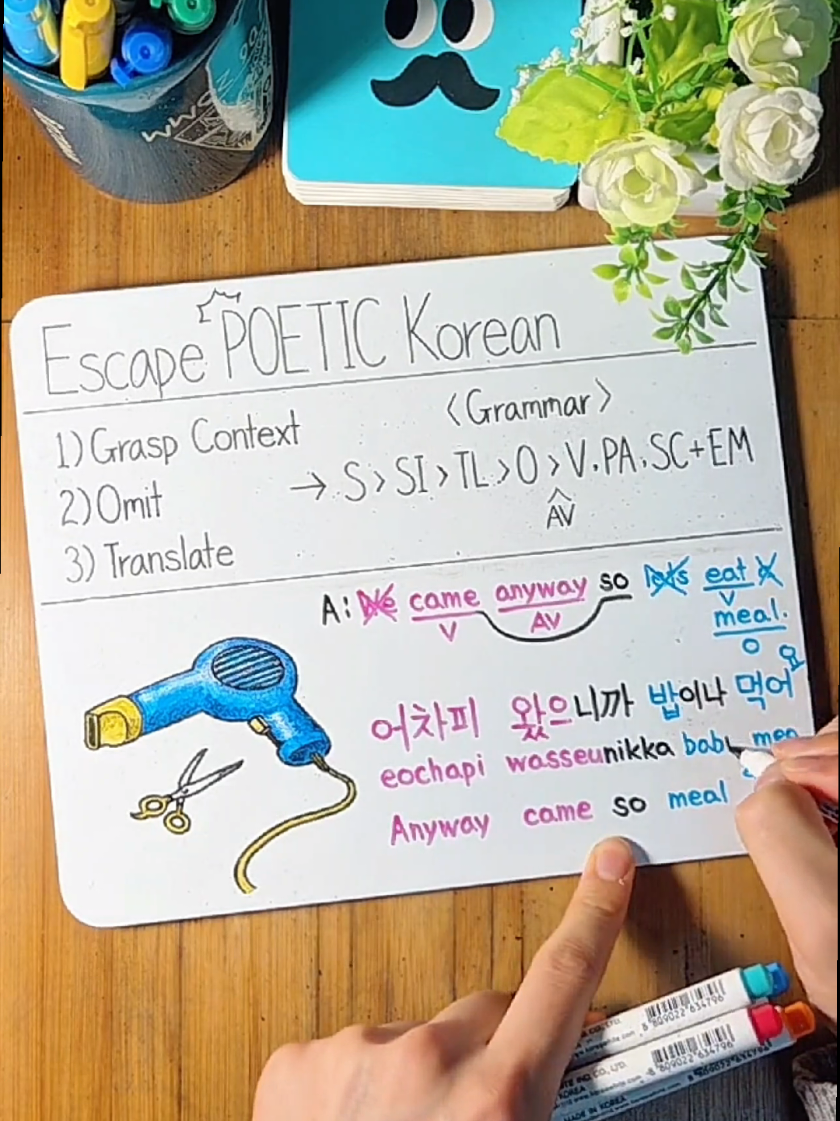 Escape POETIC Korean
1) Grasp Context
2) Omit
3) Translate
<Grammar>
→ S > SI > TL > O > V, PA, SC + EM
AV
A: We came anyway so let's eat a
V AV V
meal.
O
요
어차피 왔으니까 밥이나 먹어
eochapi wasseunikka babi
Anyway came so meal
8 809022 634796
8 809022 634796
MADE IN KOREA